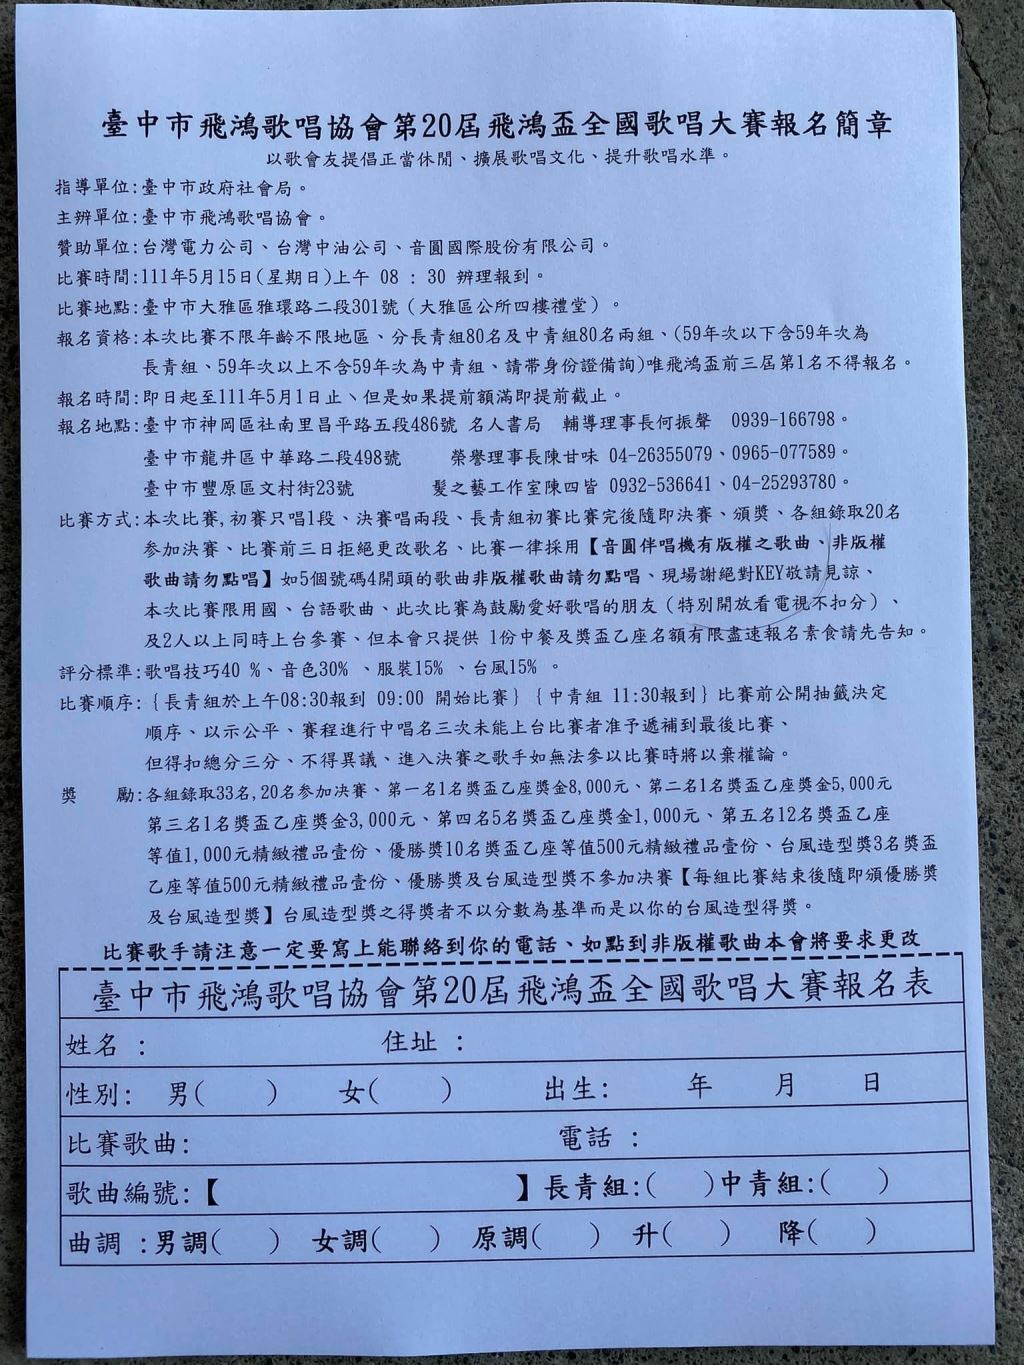 臺中市飛鴻歌唱協會第20屆飛鴻盃全國歌唱大賽報名簡章
以歌會友提倡正當休閒、擴展歌唱文化、提升歌唱水準。
指導單位:臺中市政府社會局。
主辦單位:臺中市飛鴻歌唱協會。
贊助單位:台灣電力公司、台灣中油公司、音圓國際股份有限公司。
比賽時間:111年5月15日(星期日)上午 08 : 30 辦理報到。
比賽地點:臺中市大雅區雅環路二段301號(大雅區公所四樓禮堂)。
報名資格:本次比賽不限年齡不限地區、分長青組80名及中青組80名兩組、(59年次以下含59年次為
長青組、59年次以上不含59年次為中青組、請帶身份證備詢)唯飛鴻盃前三屆第1名不得報名。
報名時間:即日起至111年5月1日止、但是如果提前額滿即提前截止。
報名地點:臺中市神岡區社南里昌平路五段486號 名人書局 輔導理事長何振聲 0939-166798。
臺中市龍井區中華路二段498號 榮譽理事長陳甘味 04-26355079、0965-077589。
臺中市豐原區文村街23號 髮之藝工作室陳四皆 0932-536641、04-25293780。
比賽方式:本次比賽,初賽只唱1段、決賽唱兩段、長青組初賽比賽完後隨即決賽、頒獎、各組錄取20名
參加決賽、比賽前三日拒絕更改歌名、比賽一律採用【音圓伴唱機有版權之歌曲、非版權
歌曲請勿點唱】如5個號碼4開頭的歌曲非版權歌曲請勿點唱、現場謝絕對KEY敬請見諒、
本次比賽限用國、台語歌曲、此次比賽為鼓勵愛好歌唱的朋友(特別開放看電視不扣分)、
及2人以上同時上台參賽、但本會只提供 1份中餐及獎盃乙座名額有限盡速報名素食請先告知。
評分標準:歌唱技巧40 %、音色30% 、服裝15% 、台風15% 。
比賽順序:{長青組於上午08:30報到 09:00 開始比賽} {中青組 11:30報到}比賽前公開抽籤決定
順序、以示公平、賽程進行中唱名三次未能上台比賽者准予遞補到最後比賽、
但得扣總分三分、不得異議、進入決賽之歌手如無法參以比賽時將以棄權論。
獎 勵:各組錄取33名,20名參加決賽、第一名1名獎盃乙座獎金8,000元、第二名1名獎盃乙座獎金5,000元
第三名1名獎盃乙座獎金3,000元、第四名5名獎盃乙座獎金1,000元、第五名12名獎盃乙座
等值1,000元精緻禮品壹份、優勝獎10名獎盃乙座等值500元精緻禮品壹份、台風造型獎3名獎盃
乙座等值500元精緻禮品壹份、優勝獎及台風造型獎不參加決賽【每組比賽結束後隨即頒優勝獎
及台風造型獎】台風造型獎之得獎者不以分數為基準而是以你的台風造型得獎。
比賽歌手請注意一定要寫上能聯絡到你的電話、如點到非版權歌曲本會將要求更改
臺中市飛鴻歌唱協會第20屆飛鴻盃全國歌唱大賽報名表
姓名 : 住址 :
性別: 男( ) 女( ) 出生: 年 月 日
比賽歌曲: 電話 :
歌曲編號:【 】長青組:( )中青組:( )
曲調 :男調( ) 女調( ) 原調( ) 升( ) 降( )